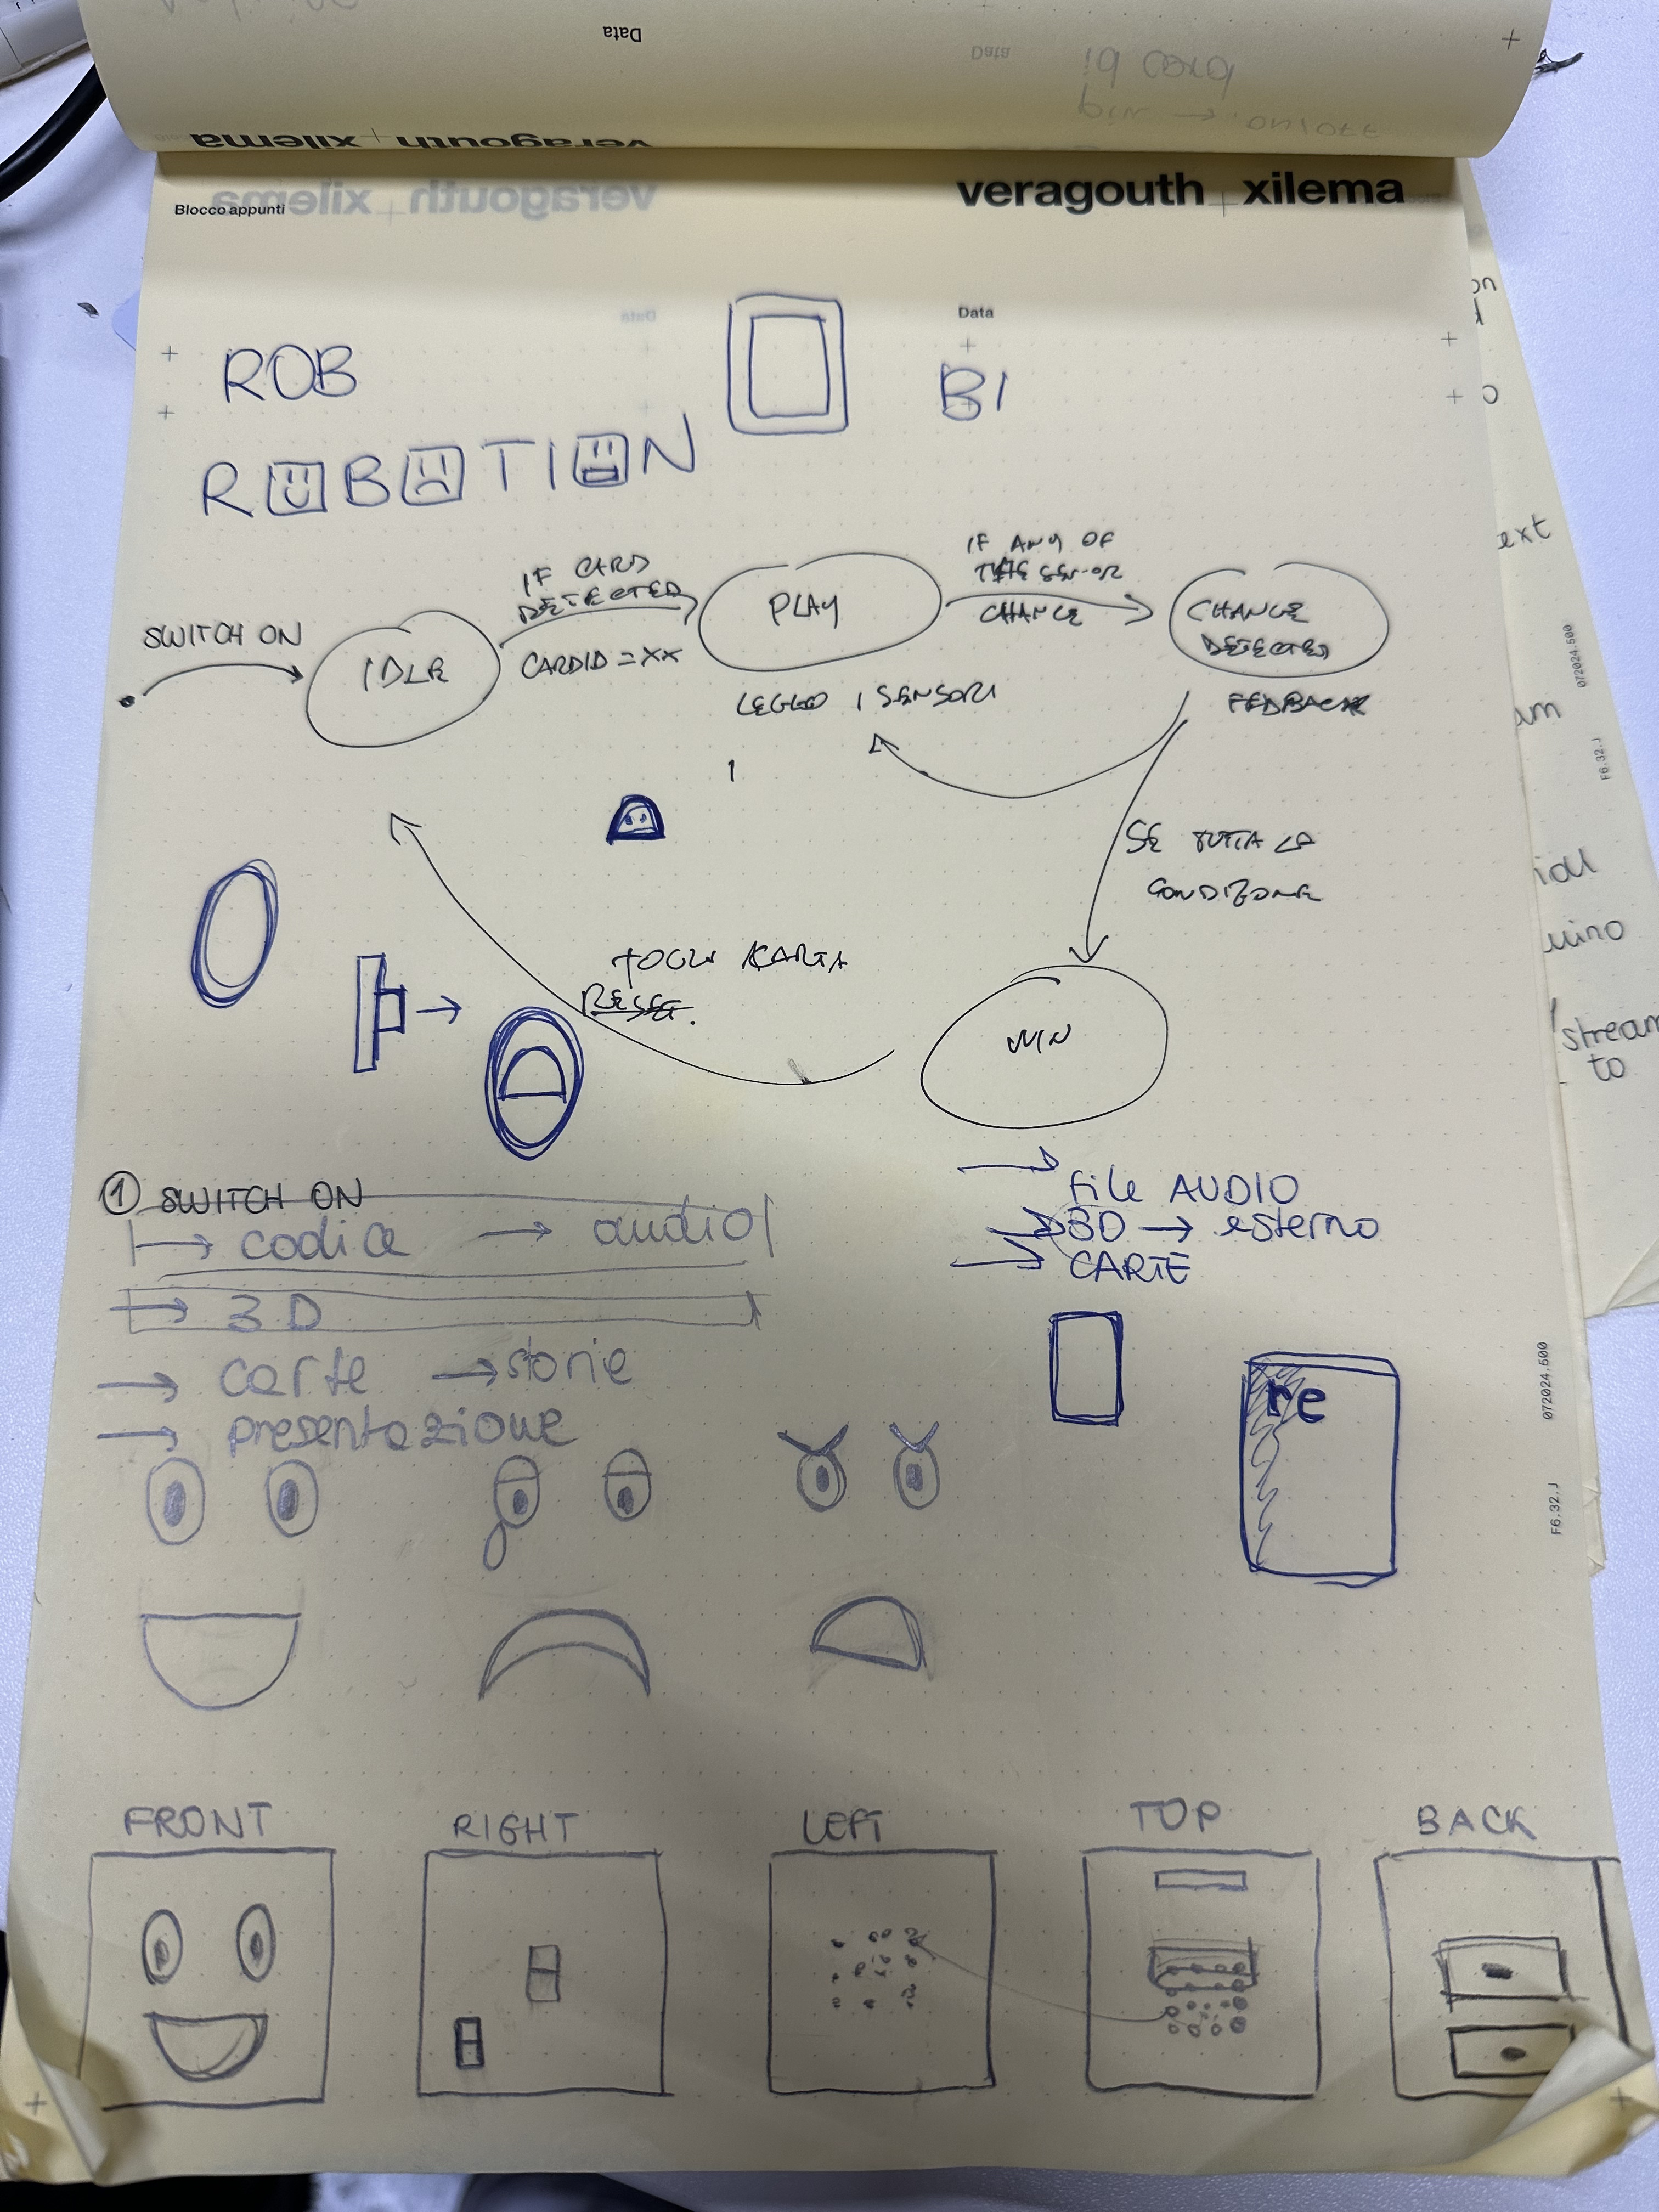 Data
Data
veragouth + xilema
Blocco appunti
veragouth + xilema
Data
ROB
BI
ROBOTION
SWITCH ON
IDLE
IF CARD
DETECTED
CARDID = XX
PLAY
LEGGO I SENSORI
IF ANY OF
THE SENSOR
CHANGE
CHANGE
DETECTED
FEDBACK
1
SE TUTTA LA
CONDIZIONE
KARTA
RESET.
WIN
① SWITCH ON
→ codice → audio
→ 3D
→ carte → storie
→ presentazione
→ file AUDIO
→ 3D → esterno
→ CARTE
re
FRONT
RIGHT
LEFT
TOP
BACK
072024.500
F6.32.J
072024.500
F6.32.J
ext
am
stream
to